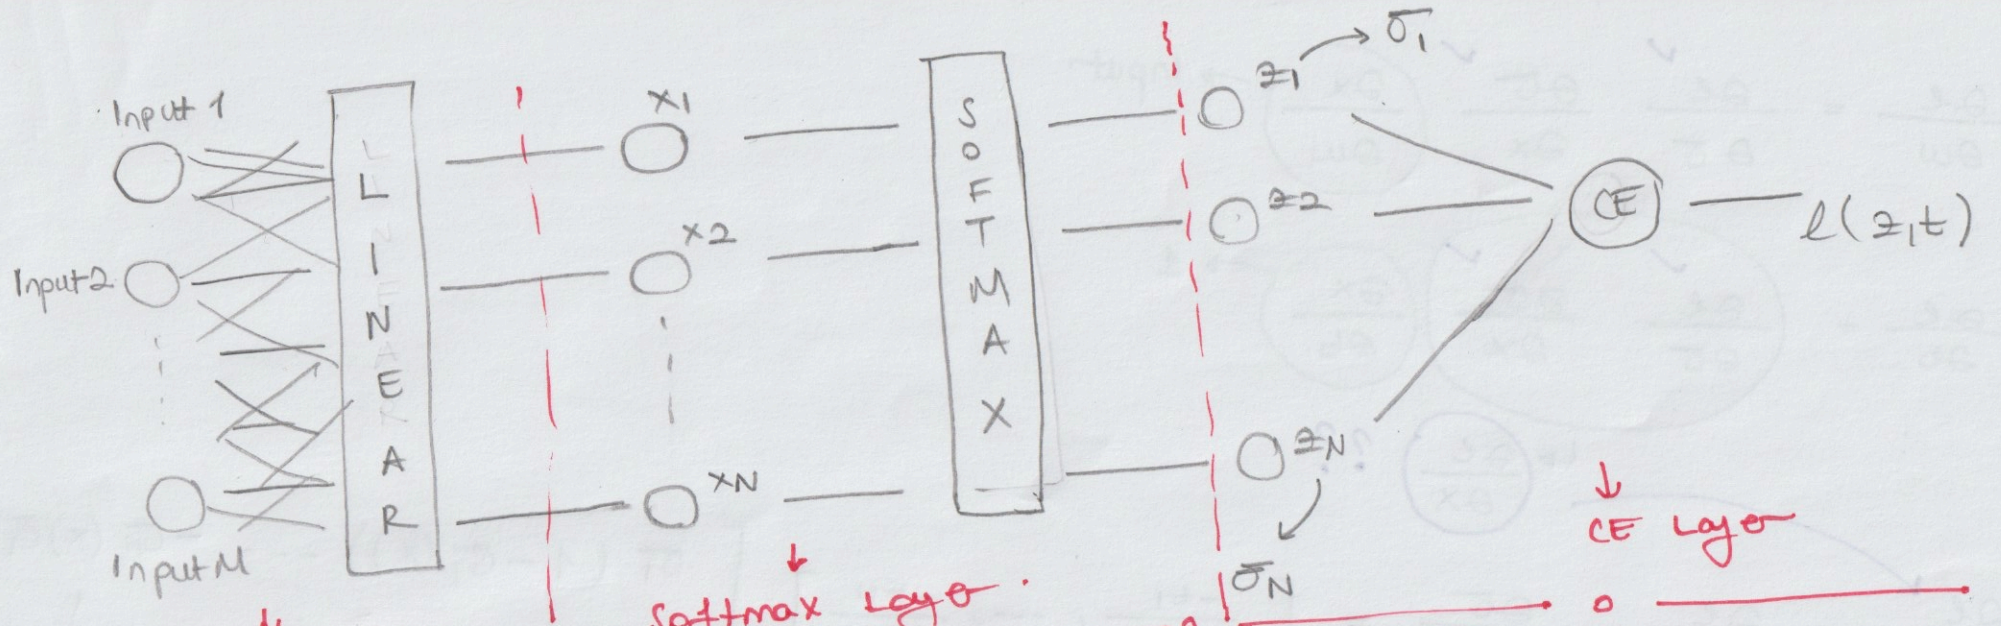 Input 1
Input 2
Input M
LINEAR
x1
x2
xN
SOFTMAX
z1
σ1
z2
zN
σN
CE
l(z,t)
Softmax Layer
CE Layer